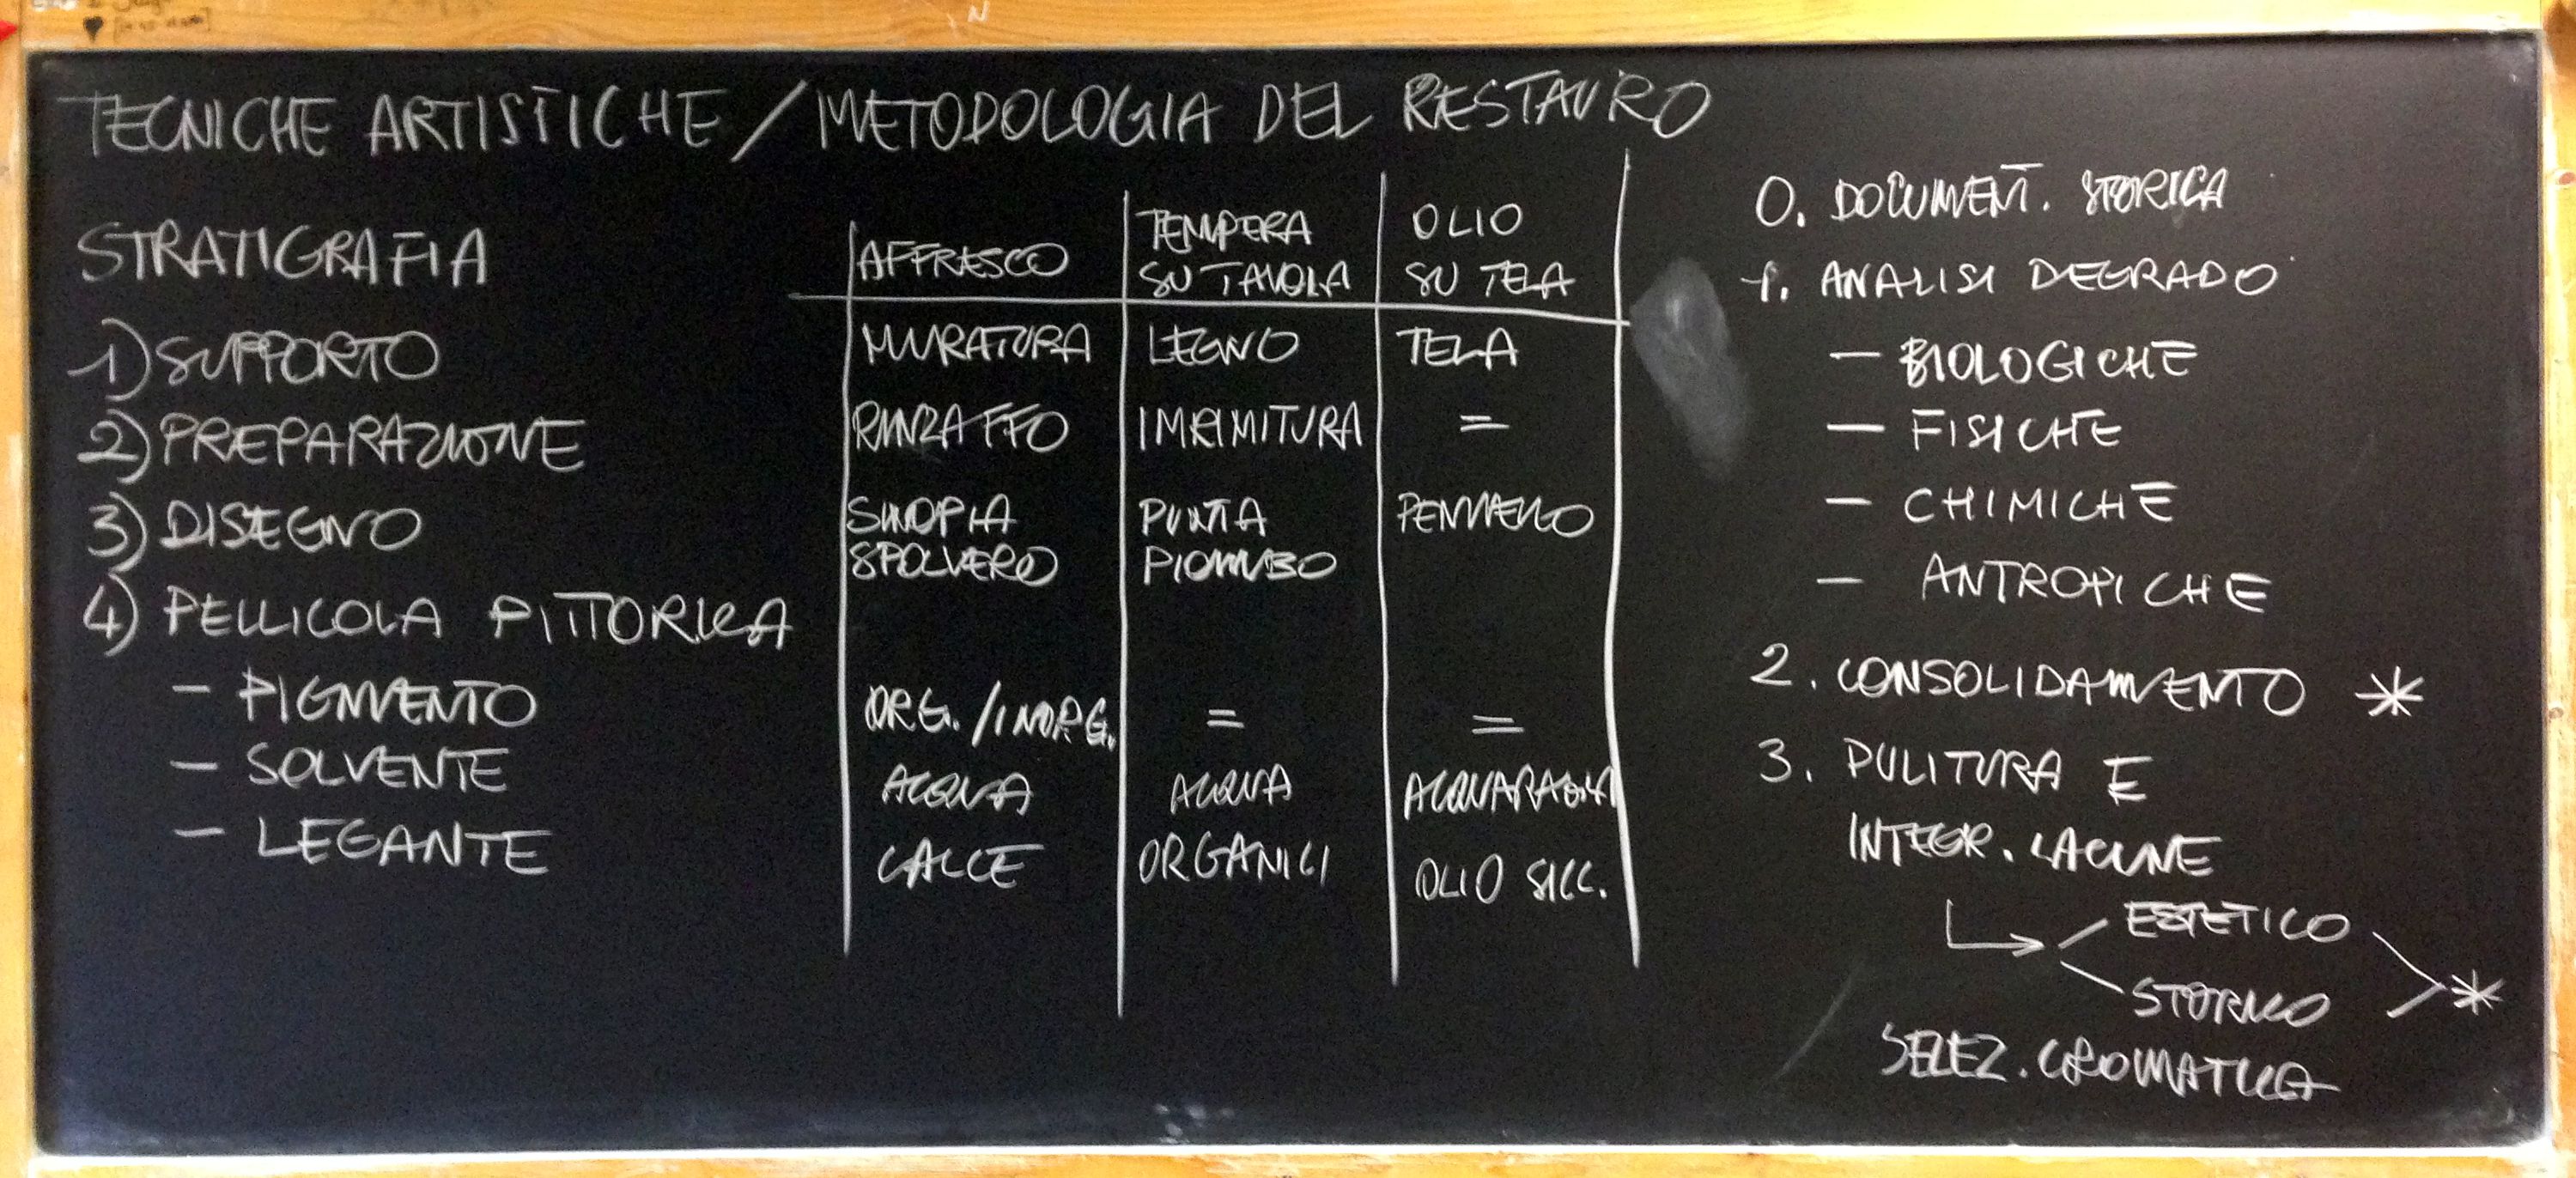 TECNICHE ARTISTICHE / METODOLOGIA DEL RESTAURO
STRATIGRAFIA
1) SUPPORTO
2) PREPARAZIONE
3) DISEGNO
4) PELLICOLA PITTORICA
- PIGMENTO
- SOLVENTE
- LEGANTE
AFFRESCO
TEMPERA
SU TAVOLA
OLIO
SU TELA
MURATURA LEGNO TELA
RINZAFFO IMPRIMITURA =
SINOPIA PUNTA PENNELLO
SPOLVERO PIOMBO
ORG. / INORG. = =
ACQUA ACQUA ACQUARAGIA
CALCE ORGANICI OLIO SICC.
0. DOCUMENT. STORICA
1. ANALISI DEGRADO
- BIOLOGICHE
- FISICHE
- CHIMICHE
- ANTROPICHE
2. CONSOLIDAMENTO *
3. PULITURA E
INTEGR. LACUNE
ESTETICO
STORICO *
SELEZ. CROMATICA